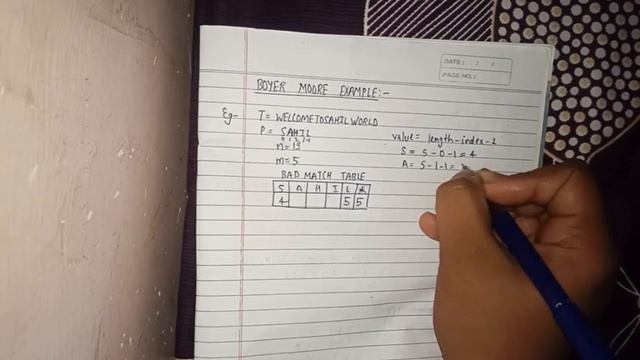 DATE: / /
PAGE NO.:
BOYER MOORE EXAMPLE:-
Eg- T= WELCOMETOSAHILWORLD
P= SAHIL
0 1 2 3 4
n=19
m=5
value= length-index-1
S= 5-0-1=4
A= 5-1-1=
BAD MATCH TABLE
S A H I L *
4 5 5